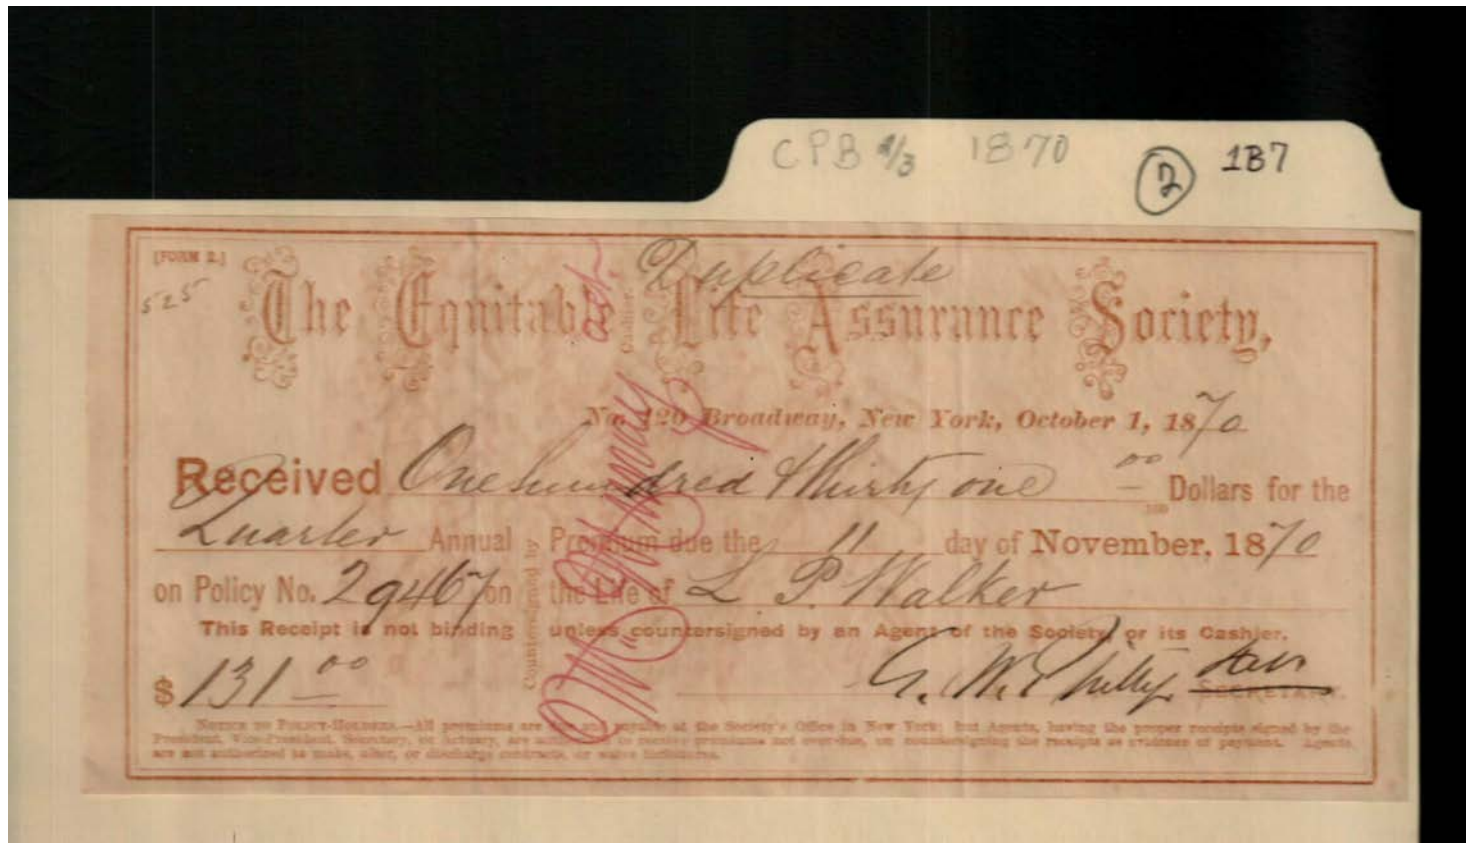 CPB 2/3 1870 ② 1B7
[FORM 2.]
525
Duplicate
The Equitable Life Assurance Society,
No. 120 Broadway, New York, October 1, 1870
Received One hundred & thirty one 00/100 Dollars for the
Quarter Annual Premium due the 11 day of November, 1870
on Policy No. 29467 on the Life of L. P. Walker
This Receipt is not binding unless countersigned by an Agent of the Society, or its Cashier.
$131 00
SECRETARY.
Countersigned by
Cashier.
NOTICE TO POLICY-HOLDERS.—All premiums are payable at the Society's Office in New York; but Agents, having the proper receipts signed by the
President, Vice-President, Secretary, or Actuary, are to receive premiums not over-due, on countersigning the receipts as evidence of payment. Agents
are not authorized to make, alter, or discharge contracts, or waive forfeitures.